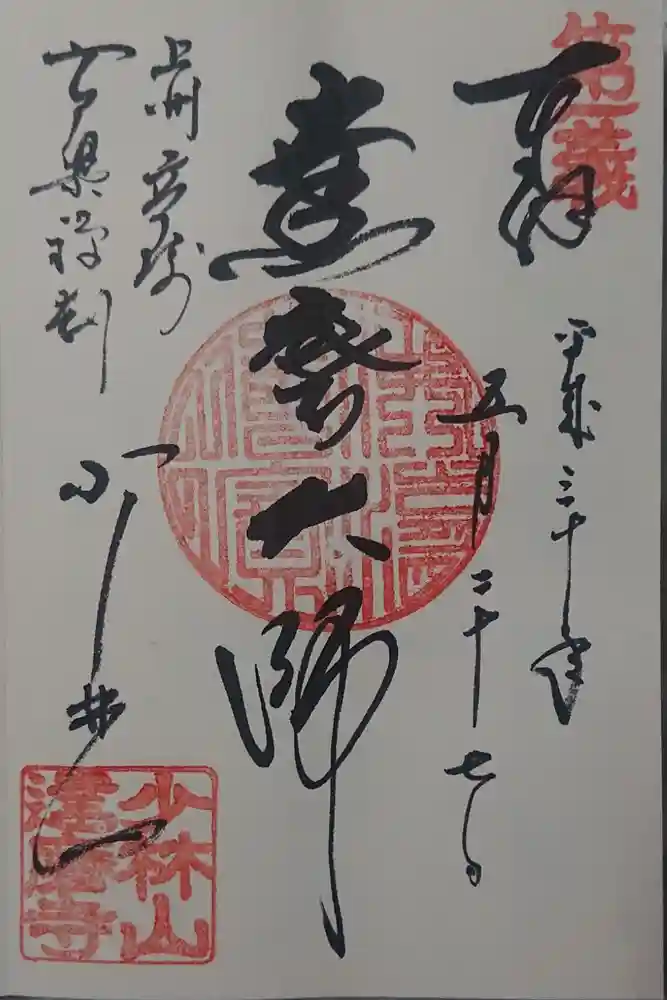 第一義
奉拝
平成三十年
五月二十七日
達磨大師
上州高崎
黄檗禅刹
少林山
少林山
達磨寺